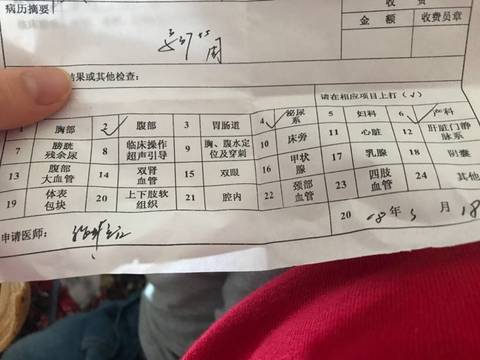 病历摘要
收 费
金 额 收费员章
周
结果或其他检查:
请在相应项目上打(√)
1 胸部 2 腹部 3 胃肠道 4 泌尿系 5 妇科 6 产科
7 膀胱残余尿 8 临床操作超声引导 9 胸、腹水定位及穿刺 10 床旁 11 心脏 12 肝脏门静脉系
13 腹部大血管 14 双肾血管 15 双眼 16 甲状腺 17 乳腺 18 阴囊
19 体表包块 20 上下肢软组织 21 腔内 22 颈部血管 23 四肢血管 24 其他
申请医师:
20 18 年 5 月 18